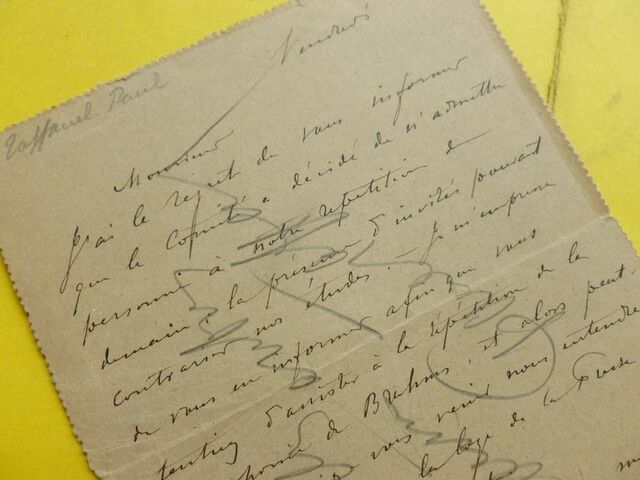 Vendredi
Taffanel. Paul
Monsieur
J'ai le regret de vous informer
que le Comité a décidé de n'admettre
personne à notre répétition de
demain, la présence d'invités pouvant
contrarier nos études. — Je m'empresse
de vous en informer afin que vous
d'assister à la répétition de la
de Brahms, et alors peut-
vous venir nous entendre
la loge de la Presse